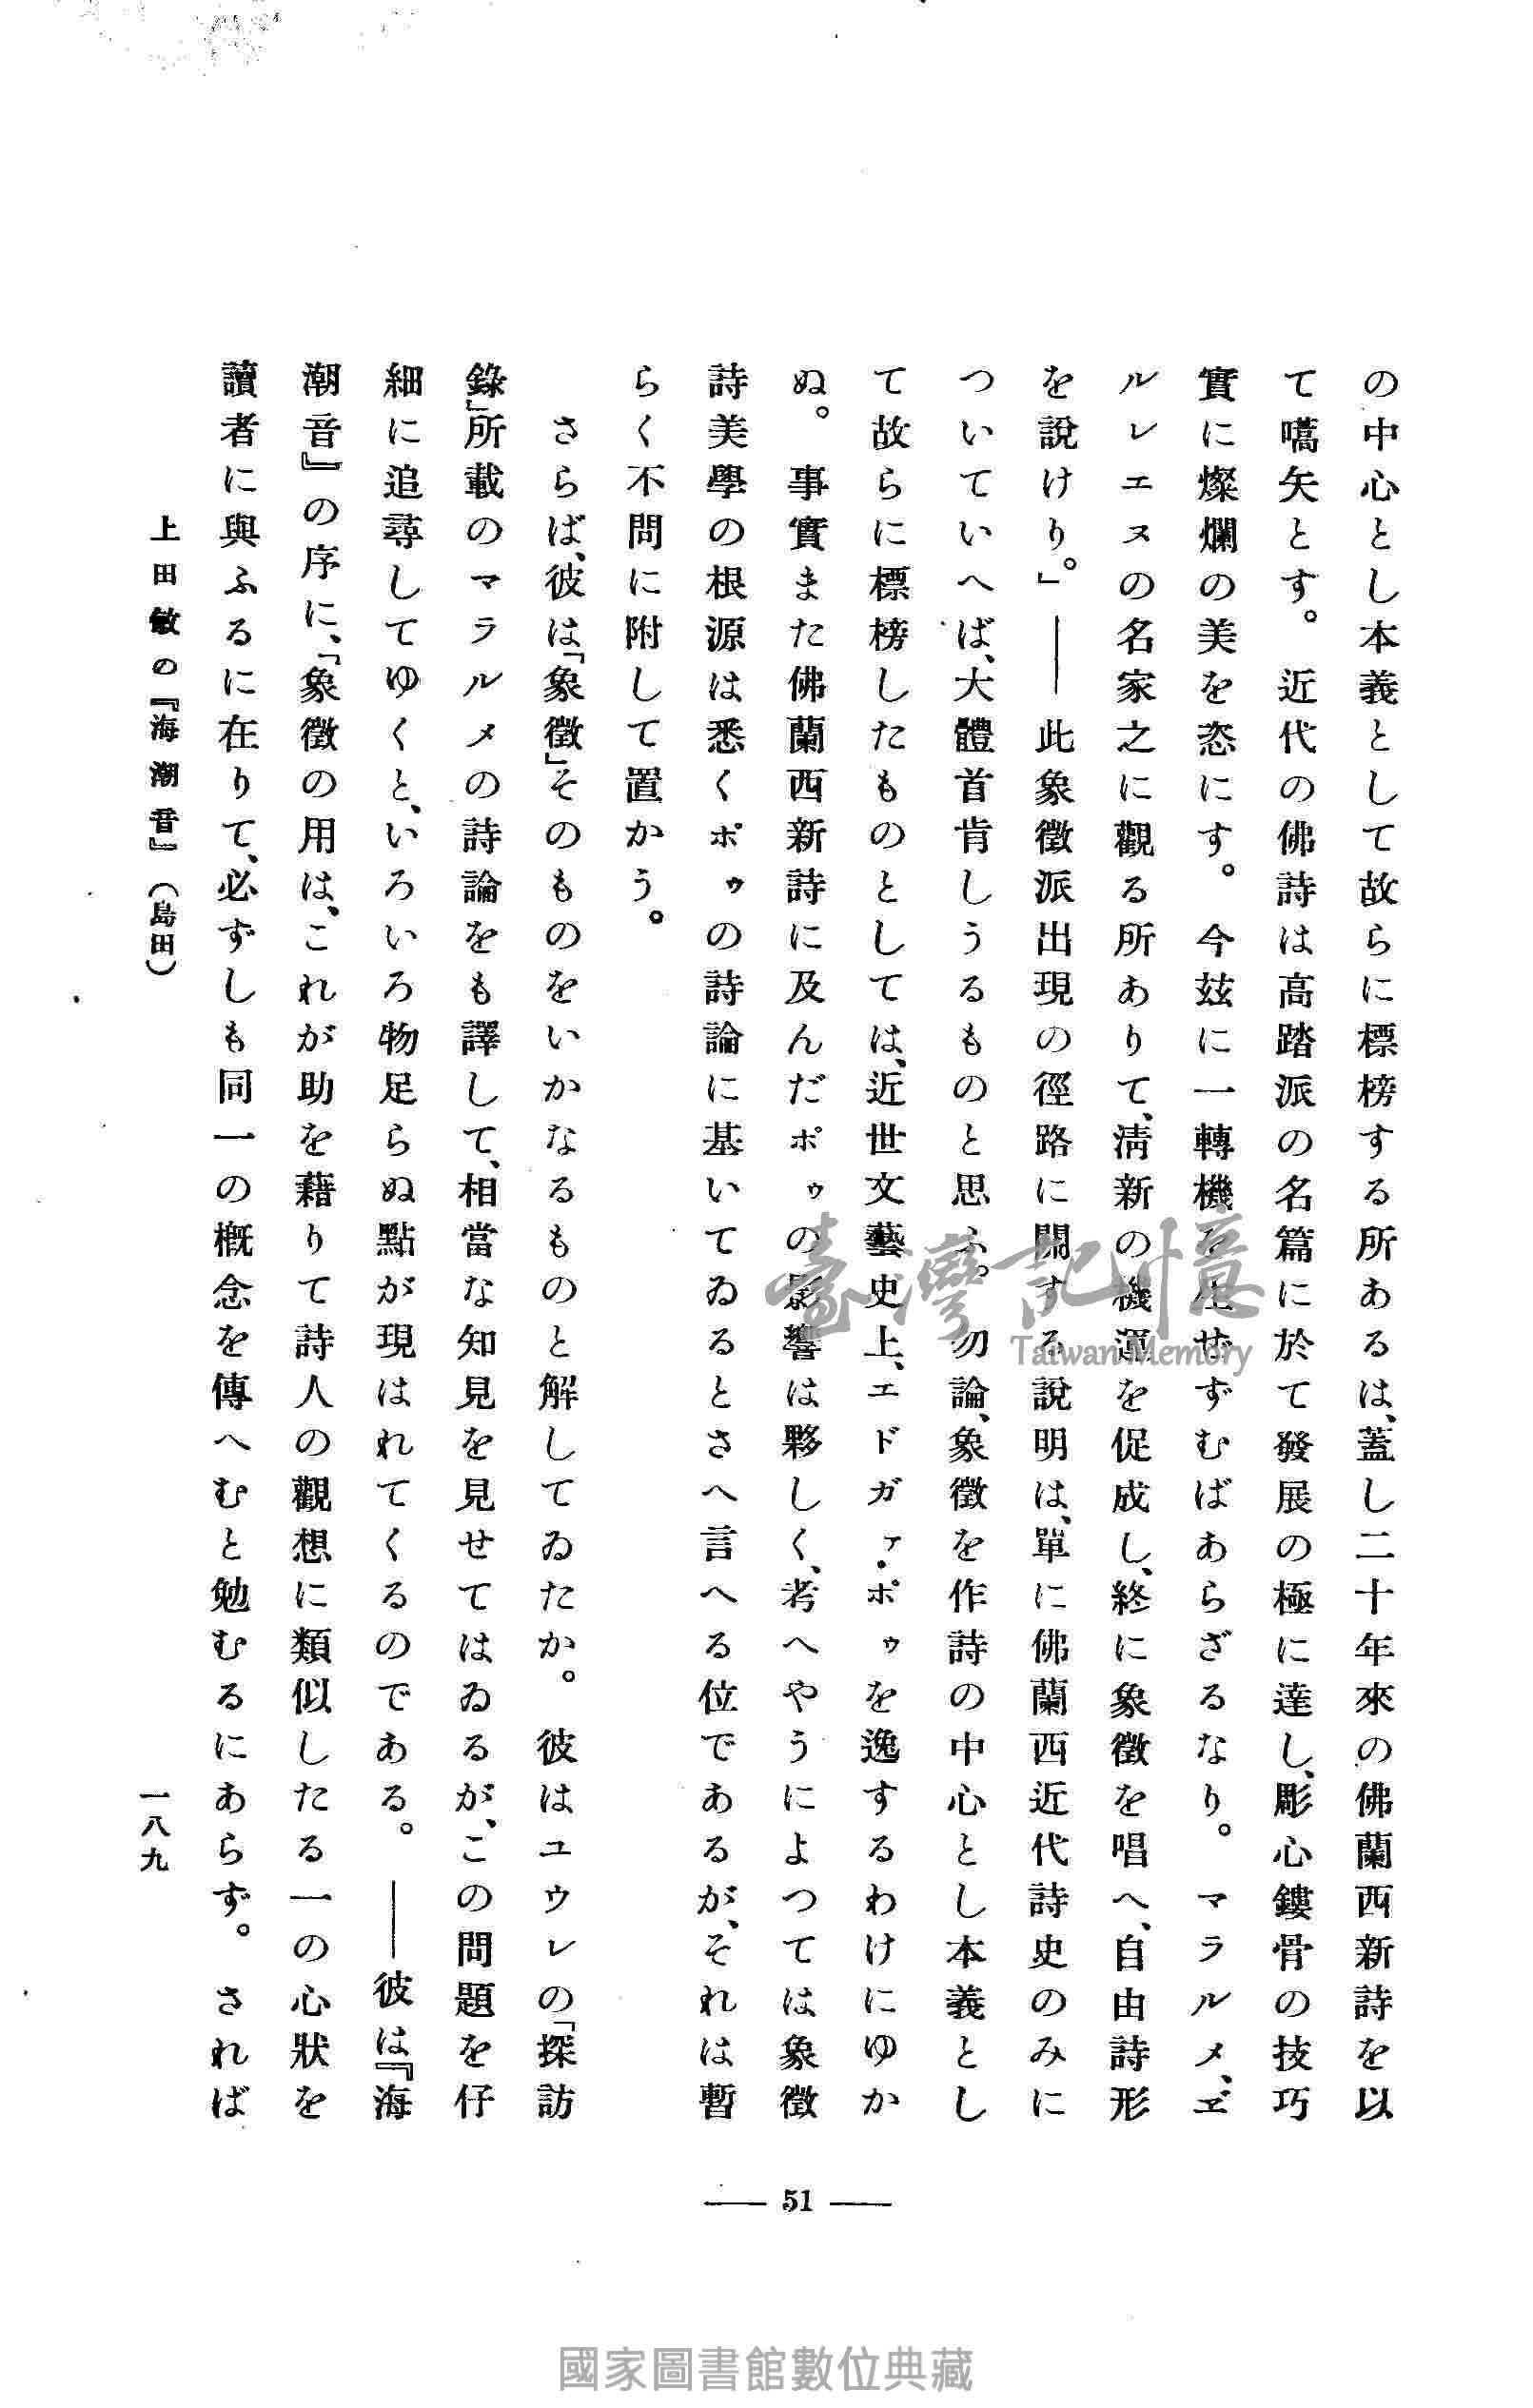 の中心とし本義として故らに標榜する所あるは、蓋し二十年來の佛蘭西新詩を以
て嚆矢とす。　近代の佛詩は高踏派の名篇に於て發展の極に達し、彫心鏤骨の技巧
實に燦爛の美を恣にす。　今玆に一轉機を生ぜずむばあらざるなり。　マラルメ、ヹ
ルレエヌの名家之に觀る所ありて、淸新の機運を促成し、終に象徵を唱へ、自由詩形
を說けり。」――此象徵派出現の徑路に關する說明は、單に佛蘭西近代詩史のみに
ついていへば、大體首肯しうるものと思ふ。　勿論、象徵を作詩の中心とし本義とし
て故らに標榜したものとしては、近世文藝史上、エドガァ・ポゥを逸するわけにゆか
ぬ。　事實また佛蘭西新詩に及んだポゥの影響は夥しく、考へやうによつては象徵
詩美學の根源は悉くポゥの詩論に基いてゐるとさへ言へる位であるが、それは暫
らく不問に附して置かう。
さらば、彼は「象徵」そのものをいかなるものと解してゐたか。　彼はユウレの「探訪
錄」所載のマラルメの詩論をも譯して、相當な知見を見せてはゐるが、この問題を仔
細に追尋してゆくと、いろいろ物足らぬ點が現はれてくるのである。　――彼は『海
潮音』の序に、「象徵の用は、これが助を藉りて詩人の觀想に類似したる一の心狀を
讀者に與ふるに在りて、必ずしも同一の槪念を傳へむと勉むるにあらず。　されば
上田敏の『海潮音』（島田）
一八九
― 51 ―
臺灣記憶
Taiwan Memory
國家圖書館數位典藏